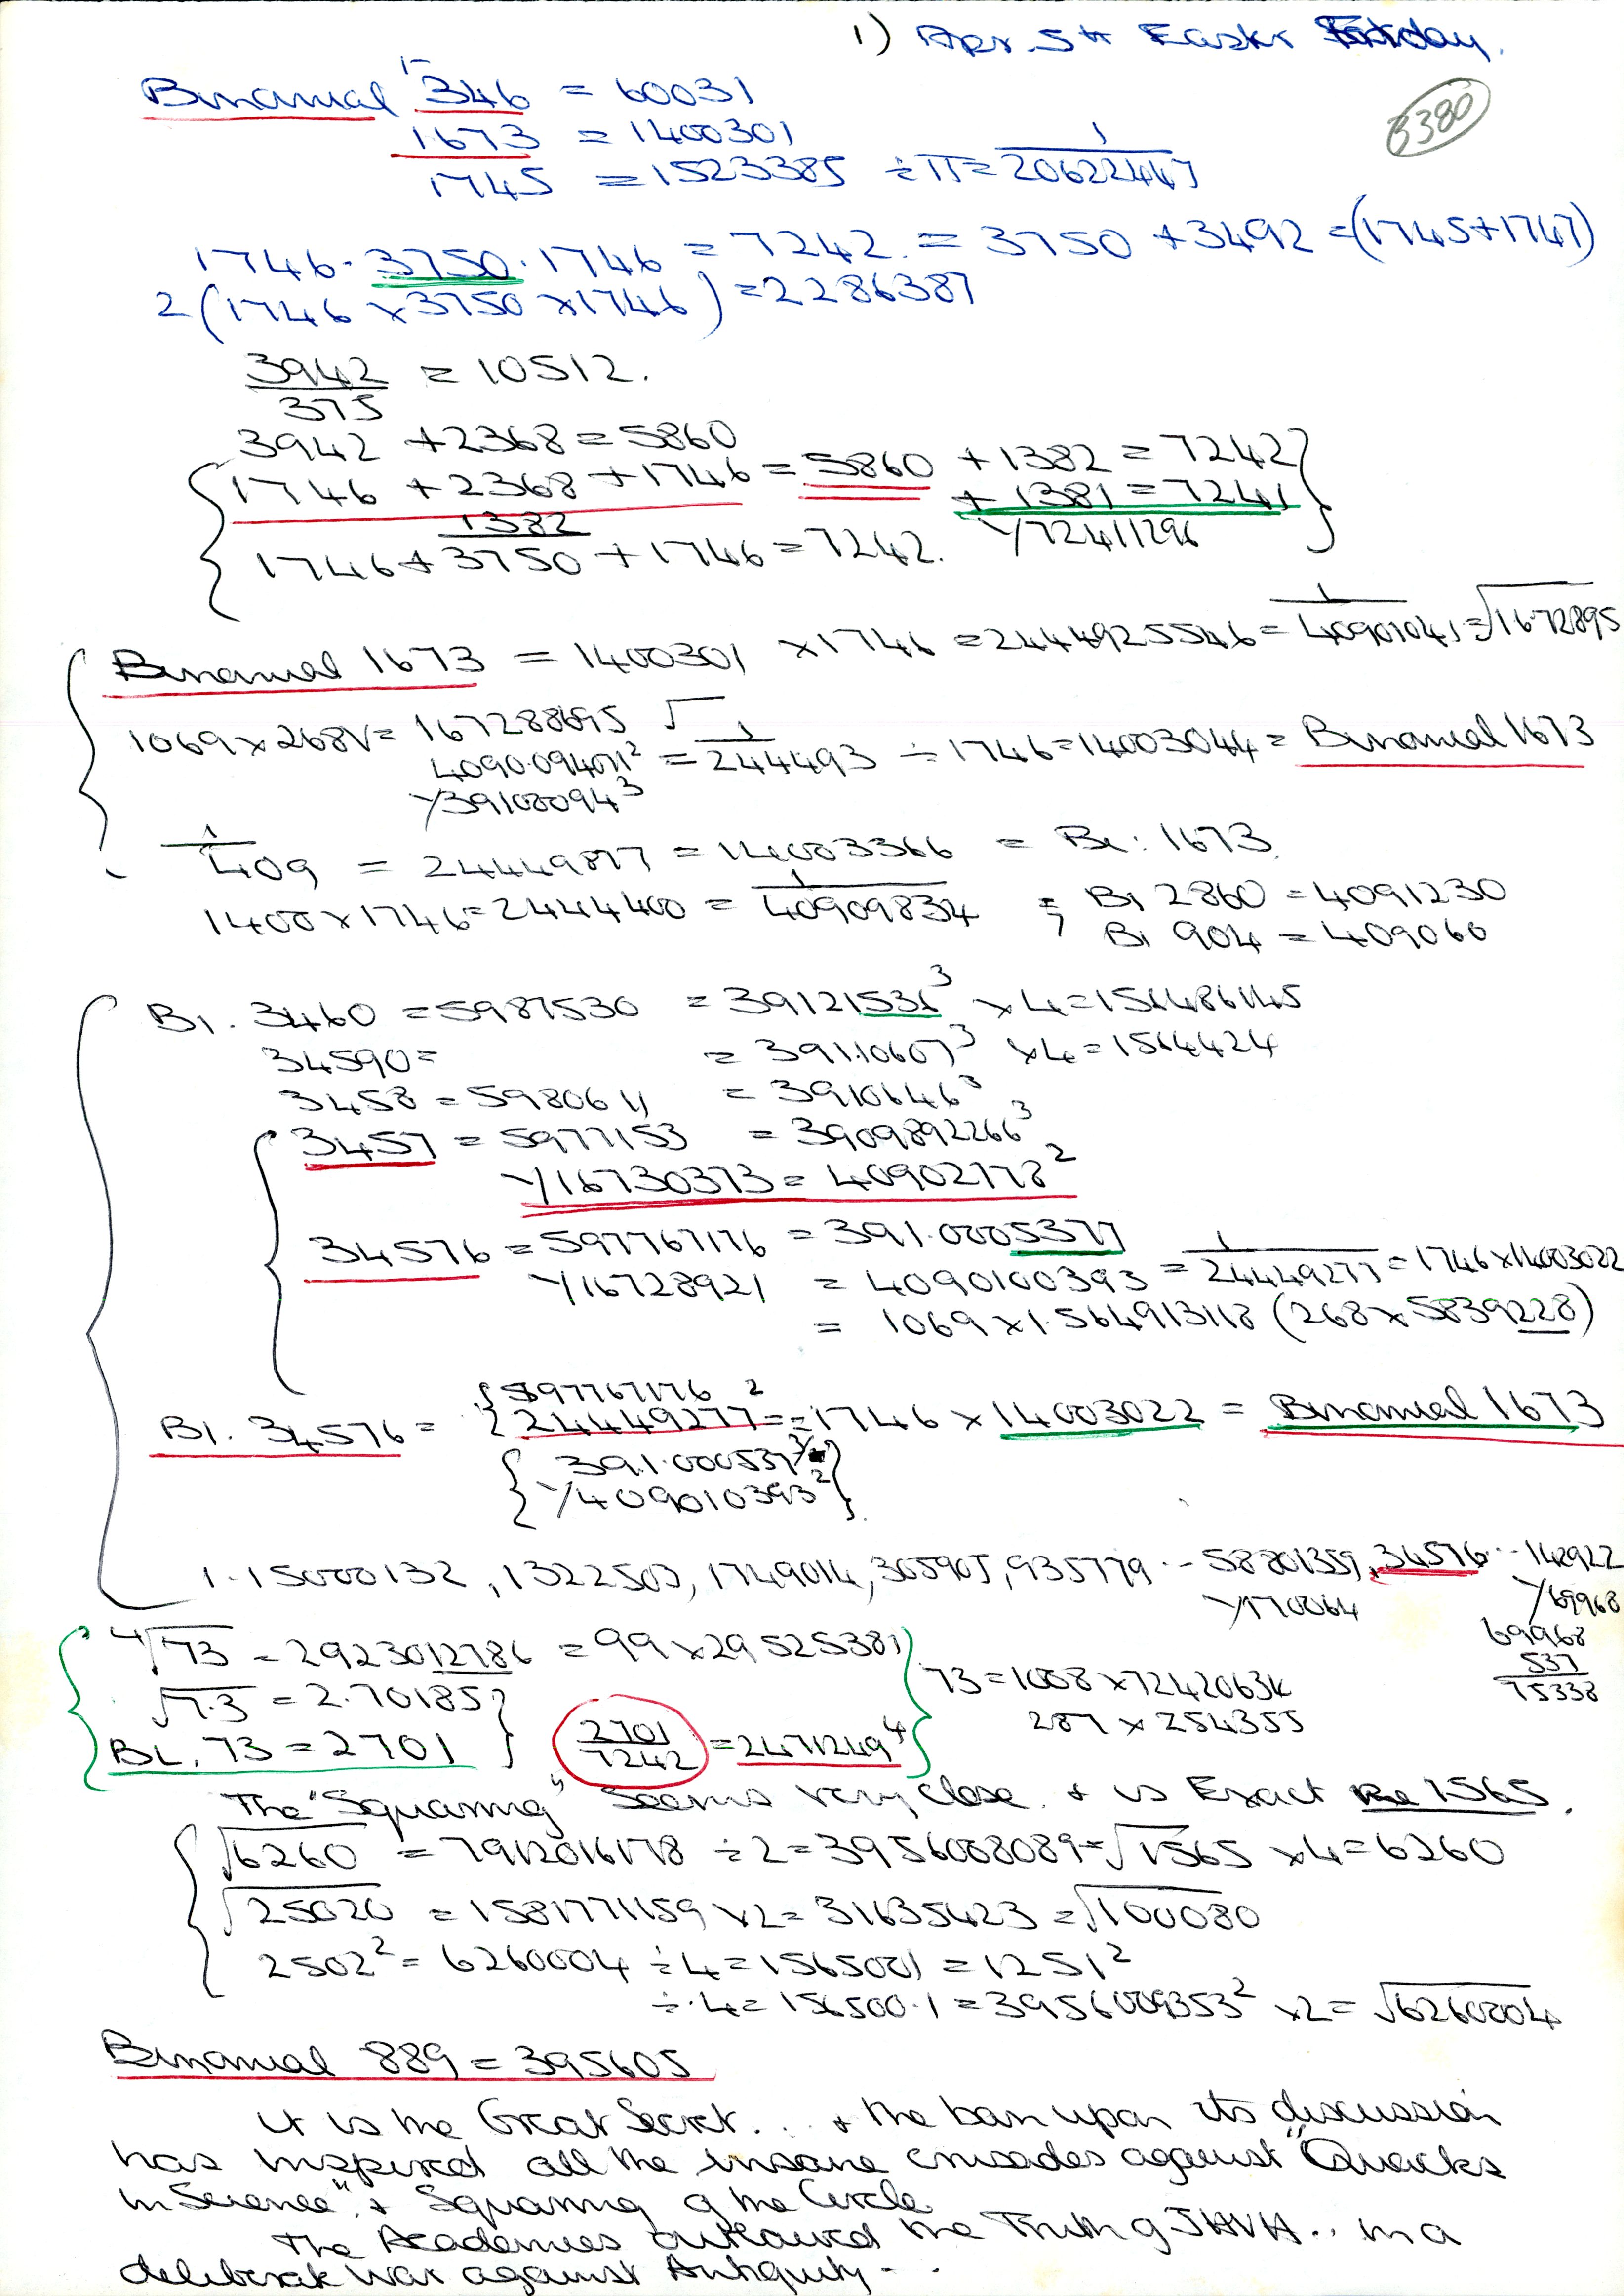 1) Apr. 5th Easter
3380
Binamial 346 = 60031
1673 = 1400301
1745 = 1523385 ÷ π = 1/20622447
1746 · 3750 · 1746 = 7242 = 3750 + 3492 = (1745+1747)
2(1746 x 3750 x 1746) = 2286387
3942/375 = 10512.
3942 + 2368 = 5860
1746 + 2368 + 1746 = 5860 + 1382 = 7242
1382 + 1381 = 7241
1746 + 3750 + 1746 = 7242. √72411296
Binamial 1673 = 1400301 x 1746 = 2444925546 = 1/40901041 = √1672895
1069 x 268 √ = 167288695 √
4090.094071² = 1/244493 ÷ 1746 = 14003044 = Binamial 1673
√39100094³
1/409 = 24449877 = 14003366 = Bi: 1673
1400 x 1746 = 2444400 = 1/40909834 ; Bi 2860 = 4091230
Bi 904 = 409060
Bi. 3460 = 5987530 = 39121536³ x 4 = 156486145
34590 = = 391.10607³ x 4 = 1564424
3458 = 5980611 = 3910646³
3457 = 5977153 = 3909892266³
√16730373 = 40902778²
34576 = 597767176 = 391.0005377
√16728921 = 4090100393 = 1/24449277 = 1746 x 14003022
= 1069 x 1.564913118 (268 x 5839228)
597767176²
Bi. 34576 = 24449277 = 1746 x 14003022 = Binomial 1673
391.000537
√409010393²
1.15000132, 1322503, 1749014, 305905, 935779 .. - 58801359, 34576 .. - 142922
√170064 √69968
69968
⁴√73 = 2923012786 = 99 x 29525381 537
√7.3 = 2.70185 73 = 1008 x 72420634 75338
287 x 254355
Bi. 73 = 2701 2701/7242 = 2471249⁴
The "Squaring" Seems very close. + is Exact Re 1565.
√6260 = 7912016178 ÷ 2 = 3956008089 = √1565 x 4 = 6260
√25020 = 1581771159 x 2 = 31635423 = √100080
2502² = 6260004 ÷ 4 = 1565001 = 1251²
÷ 4 = 156500.1 = 3956009353² x 2 = √6260004
Binamial 889 = 395605
It is the Great Secret... + the ban upon its discussion
has inspired all the insane crusades against "Quacks
in Science", + Squaring of the Circle.
The Academies outlawed the Truth of JHVH .. in a
deliberate War against Antiquity - ..